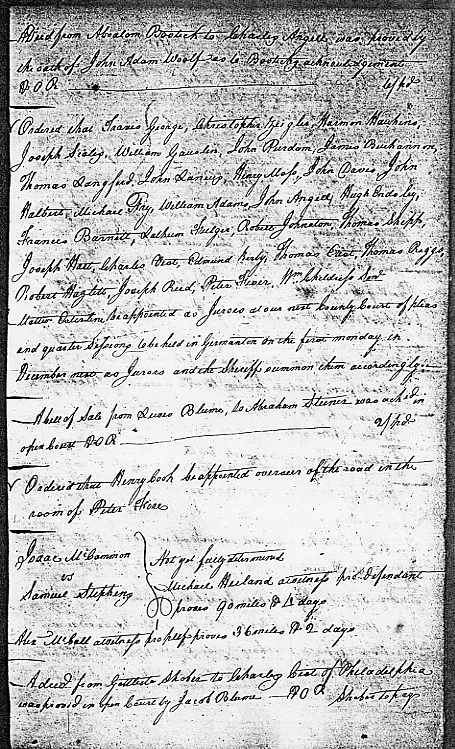 A Deed from Absalom Bostick to Charles Angell was proved by
the oath of John Adam Woolf as to Bosticks acknowledgement
& O R
Ordered that Travis George, Christopher Zeigler, Harmon Hawkins,
Joseph Sealey, William Gauslin, John Purdom, James Buchannon,
Thomas Langford, John Lanius, Henry Moss, John Davis, John
Halbert, Michael Fry, William Adams, John Angell, Hugh Endsley,
Francis Barnett, Robert Johnston, Thomas Shipp,
Joseph Hatt, Charles Vest, Edmund Kerly, Thomas East, Thomas Raggs,
Robert Hazlett, Joseph Reed, Peter Feree, Wm Childress Senr
be appointed as Jurors at our next County Court of pleas
and quarter Sessions to be held in Germanton on the first monday in
December next as Jurors and the Sheriff summon them accordingly
A bill of Sale from Blume, to Abraham Steiner was ackd in
open Court & O R 2/ pd
Ordered that Henry Cook be appointed overseer of the road in the
room of Peter Feree
Isaac McCammon
vs
Samuel Stephens
Not yet fully determined
Michael a witness pro. Defendant
proves 90 miles & 4 days
Alex McCall a witness proves 36 miles & 2 days
A deed from Gottlieb Shober to Charles Cist of Philadelphia
was proved in open Court by Jacob Blume & O R Shober to pay